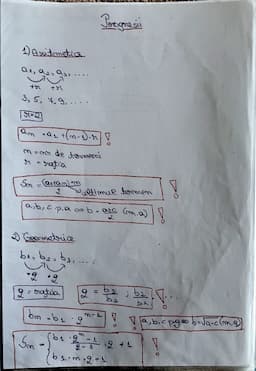 Progresii
1) Aritmetica
a₁, a₂, a₃, ....
+r +r
3, 5, 7, 9, ...
r=2
aₙ = a₁ + (n-1)·r !
n = nr de termeni
r = ratia
Sₙ = (a₁+aₙ)·n / 2 ultimul termen !
a, b, c p.a => b = a+c / 2 (m.a) !
2) Geometrica
b₁, b₂, b₃, ....
·q ·q
q = ratia q = b₂/b₁ ; b₃/b₂ ... !
bₙ = b₁ · qⁿ⁻¹ ! ! a, b, c p.g => b = √a·c (m.g)
Sₙ = { b₁ · qⁿ-1 / q-1 , q ≠ 1 !
b₁ · n, q = 1